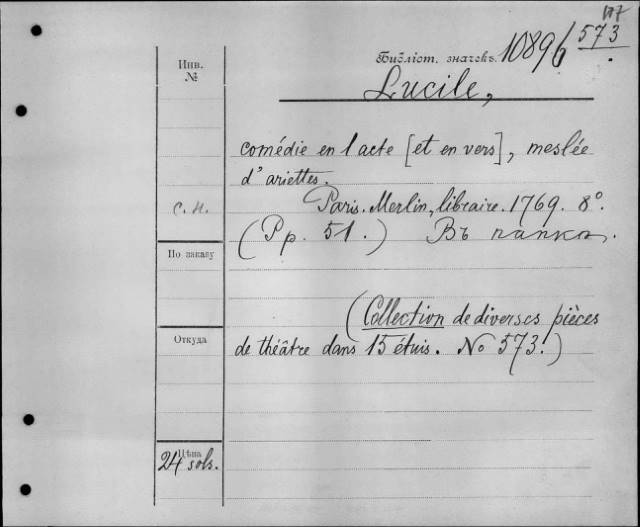 Инв.
№
Библіот. значекъ. 10896 573
Lucile,
comédie en 1 acte [et en vers], meslée
d'ariettes.
с. н. Paris. Merlin, libraire. 1769. 8°.
(Pp. 51.) Въ папкѣ.
По заказу
(Collection de diverses pièces
Откуда
de théâtre dans 15 étuis. No 573.)
Цѣна
24 sols.